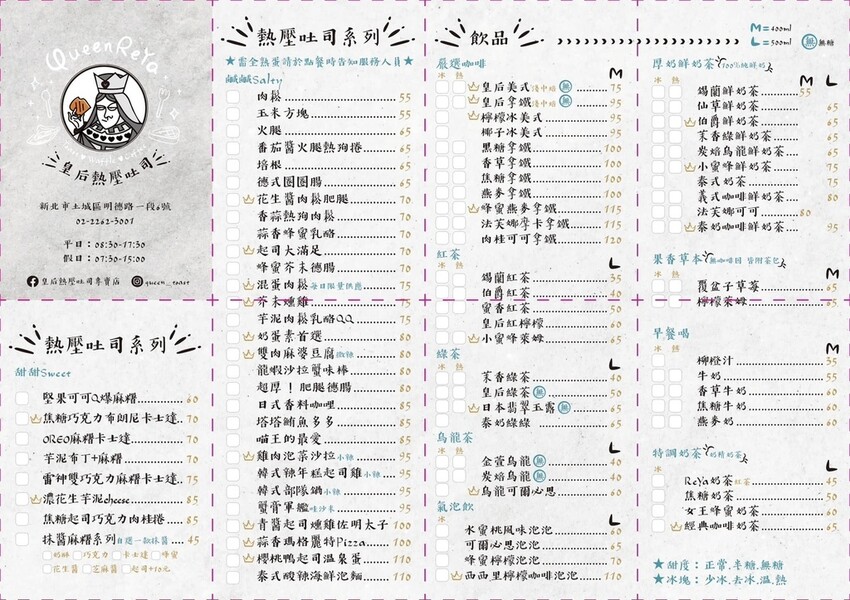 QueenReYa
Waffle Coffee
皇后熱壓吐司
新北市土城區明德路一段6號
02-2262-3001
平日：08:30-17:30
假日：07:30-15:00
皇后熱壓吐司專賣店 queen_toast
熱壓吐司系列
甜甜Sweet
堅果可可Q爆麻糬 60
焦糖巧克力布朗尼卡士達 70
OREO麻糬卡士達 70
芋泥布丁+麻糬 70
雷神雙巧克力麻糬卡士達 75
濃花生芋泥cheese 85
焦糖起司巧克力肉桂捲 85
抹醬麻糬系列自選一款抹醬 45
奶酥 巧克力 卡士達 蜂蜜
花生醬 芝麻醬 起司+10元
熱壓吐司系列
★需全熟蛋請於點餐時告知服務人員★
鹹鹹Salty
肉鬆 55
玉米方塊 55
火腿 65
番茄醬火腿熱狗捲 65
培根 65
德式圈圈腸 65
花生醬肉鬆肥腿 70
香蒜熱狗肉鬆 70
蒜香蜂蜜乳酪 70
起司大滿足 70
蜂蜜芥末德腸 70
混蛋肉鬆每日限量供應 75
芥末燻雞 75
芋泥肉鬆乳酪QQ 75
奶蛋素首選 80
雙肉麻婆豆腐微辣 80
龍蝦沙拉蟹味棒 80
超厚！肥腿德腸 80
日式香料咖哩 85
塔塔鮪魚多多 85
喵王的最愛 85
雞肉泡菜沙拉小辣 95
韓式辣年糕起司雞小辣 95
韓式部隊鍋小辣 95
蟹膏軍艦哇沙卡 95
青醬起司燻雞佐明太子 100
蒜香瑪格麗特Pizza 100
櫻桃鴨起司溫泉蛋 110
泰式酸辣海鮮泡麵 110
飲品
M=400ml
L=500ml 無 無糖
嚴選咖啡
冰 熱 M
皇后美式淺中焙 無 75
皇后拿鐵淺中焙 無 95
檸檬冰美式 95
椰子冰美式 95
黑糖拿鐵 100
香草拿鐵 100
焦糖拿鐵 100
燕麥拿鐵 100
蜂蜜燕麥拿鐵 115
法芙娜摩卡拿鐵 115
肉桂可可拿鐵 120
紅茶
冰 熱 L
錫蘭紅茶 35
伯爵紅茶 40
蜜香紅茶 50
皇后紅檸檬 60
小蜜蜂萊姆 65
綠茶
冰 熱 L
茉香綠茶 40
皇后綠茶 無 50
日本翡翠玉露 無 65
泰奶綠綠 65
烏龍茶
冰 熱 L
金萱烏龍 無 40
炭焙烏龍 無 40
烏龍可爾必思 60
氣泡飲
冰 L
水蜜桃風味泡泡 60
可爾必思泡泡 65
蜂蜜檸檬泡泡 70
西西里檸檬咖啡泡泡 110
厚奶鮮奶茶100%純鮮奶
冰 熱 M L
錫蘭鮮奶茶 55
仙草鮮奶茶 65
伯爵鮮奶茶 65
茉香綠鮮奶茶 65
炭焙烏龍鮮奶茶 65
小蜜蜂鮮奶茶 75
泰式奶茶 75
義式咖啡鮮奶茶 80
法芙娜可可 80
泰奶咖啡鮮奶茶 95
果香草本無咖啡因 皆附茶包
冰 熱 M
覆盆子草莓 65
檸檬萊姆 65
早餐喝
冰 熱 M
柳橙汁 35
牛奶 55
香草牛奶 60
焦糖牛奶 60
燕麥奶 60
特調奶茶奶精奶茶
冰 L
ReYa奶茶紅茶 45
焦糖奶茶 50
女王蜂蜜奶茶 60
經典咖啡奶茶 65
★甜度：正常.半糖.無糖
★冰塊：少冰.去冰.溫.熱